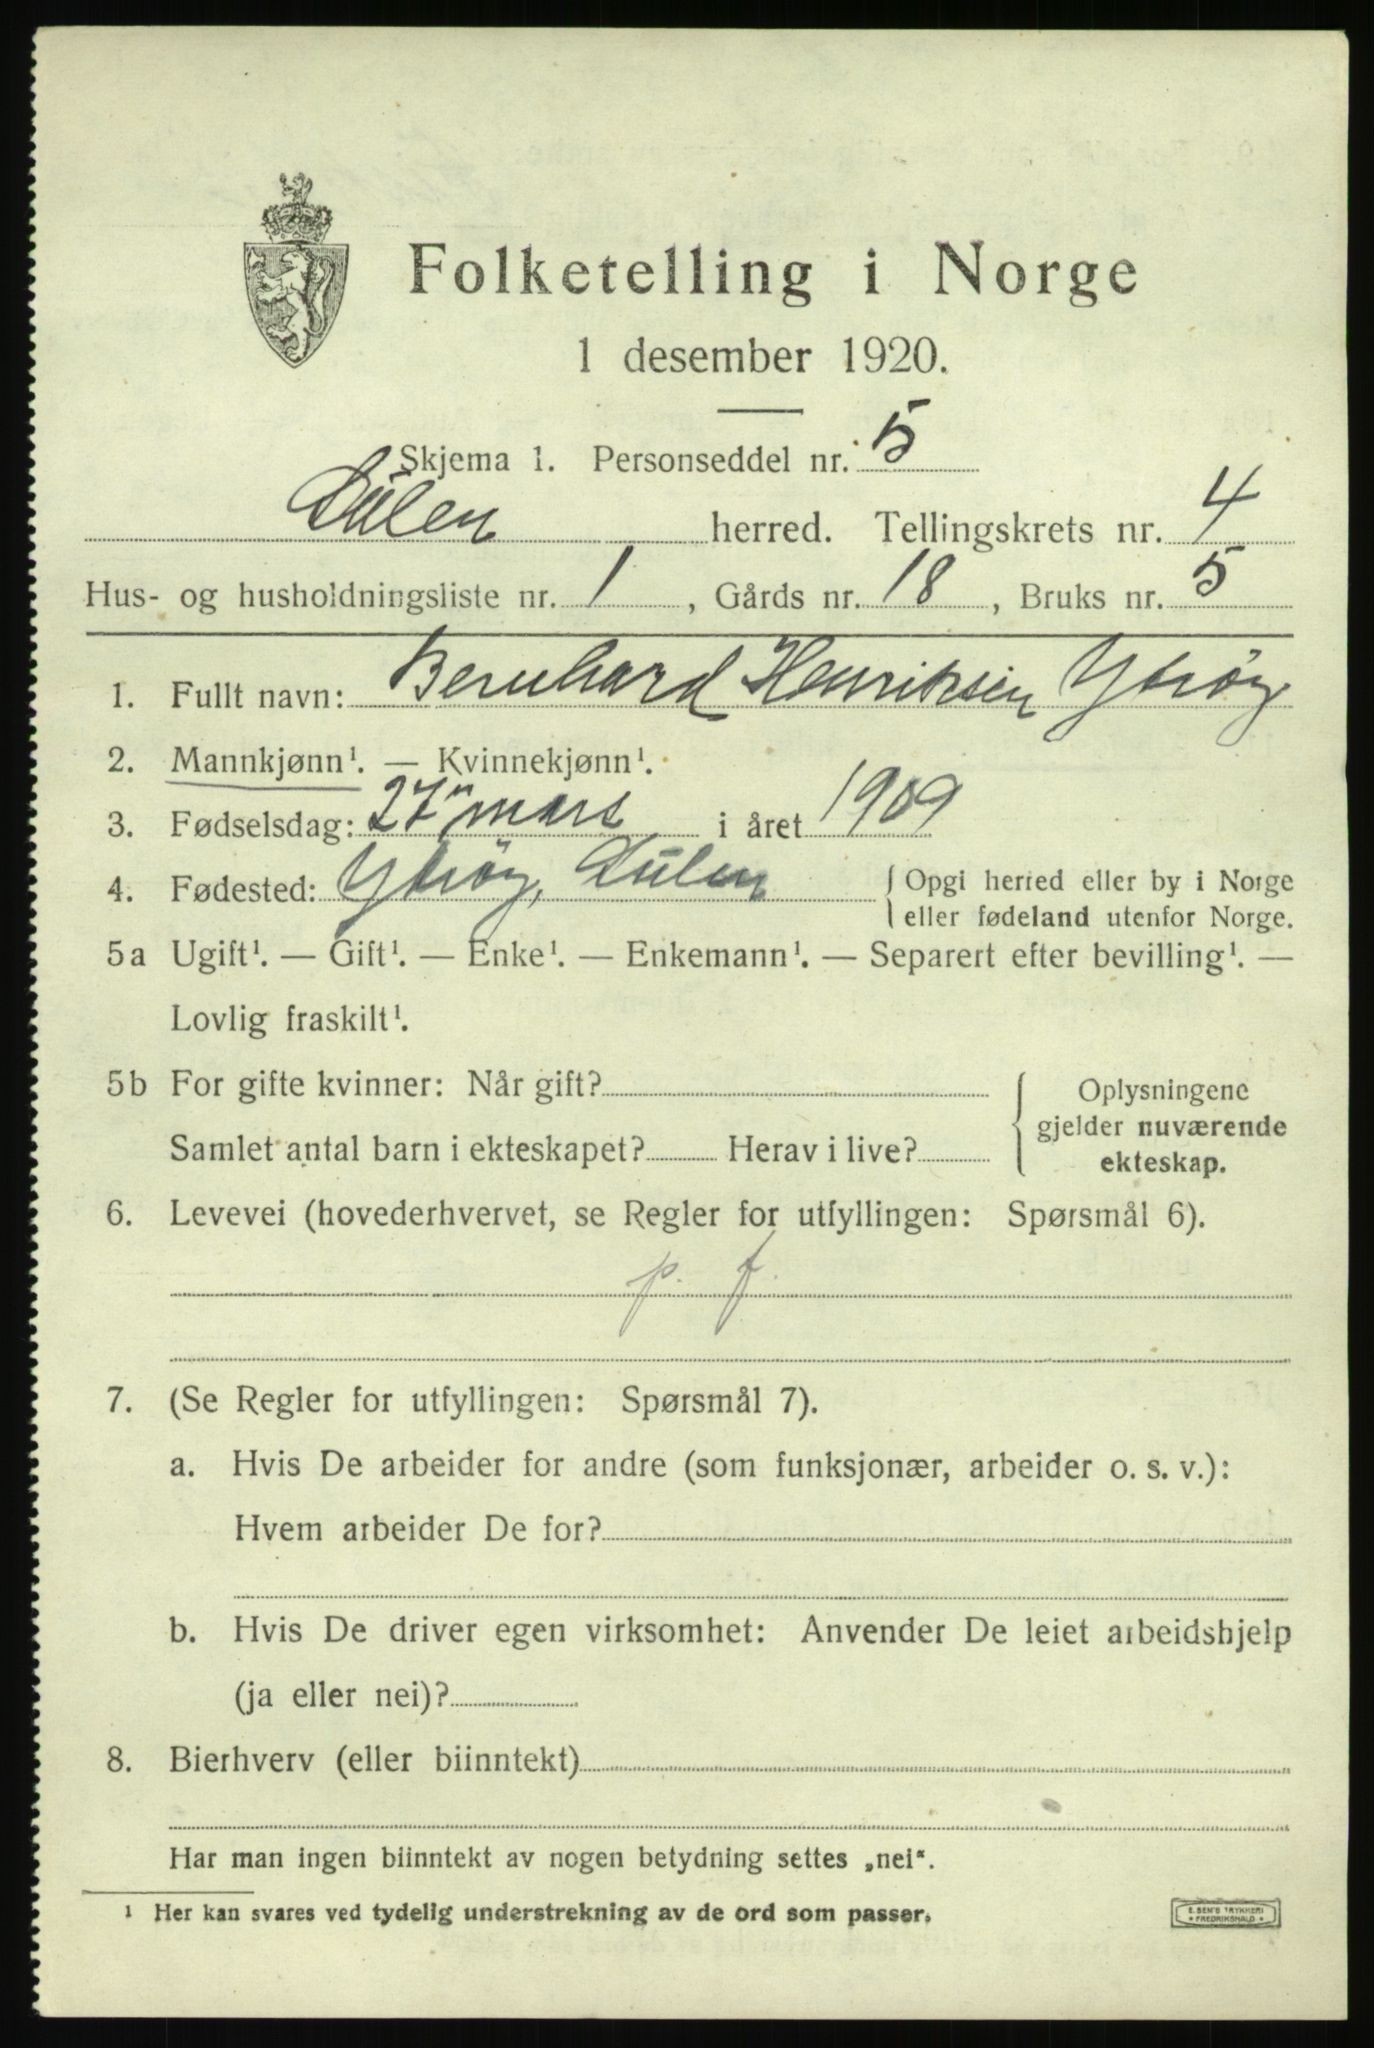 Folketelling i Norge
1 desember 1920.
Skjema 1. Personseddel nr. 5
Sulen herred. Tellingskrets nr. 4
Hus- og husholdningsliste nr. 1, Gårds nr. 18, Bruks nr. 5
1. Fullt navn: Bernhard Henriksen Ytrøy
2. Mannkjønn¹. — Kvinnekjønn¹.
3. Fødselsdag: 27" mars i året 1909
4. Fødested: Ytrøy, Sulen { Opgi herred eller by i Norge
eller fødeland utenfor Norge.
5a Ugift¹. — Gift¹. — Enke¹. — Enkemann¹. — Separert efter bevilling¹. —
Lovlig fraskilt¹.
5b For gifte kvinner: Når gift? { Oplysningene
gjelder nuværende
Samlet antal barn i ekteskapet? Herav i live? ekteskap.
6. Levevei (hovederhvervet, se Regler for utfyllingen: Spørsmål 6).
p. f.
7. (Se Regler for utfyllingen: Spørsmål 7).
a. Hvis De arbeider for andre (som funksjonær, arbeider o. s. v.):
Hvem arbeider De for?
b. Hvis De driver egen virksomhet: Anvender De leiet arbeidshjelp
(ja eller nei)?
8. Bierhverv (eller biinntekt)
Har man ingen biinntekt av nogen betydning settes „nei“.
¹ Her kan svares ved tydelig understrekning av de ord som passer.
E. SEM'S TRYKKERI
* FREDRIKSHALD *